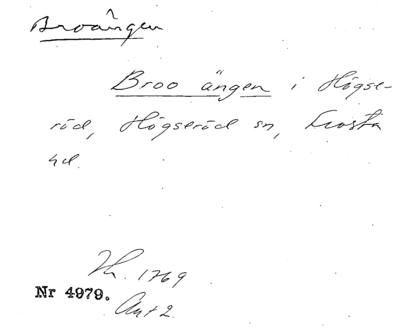 Broängen
Broo ängen i Högse-
röd, Högseröd sn, Frosta
hd.
Th. 1769
Nr 4979.
Ant 2.